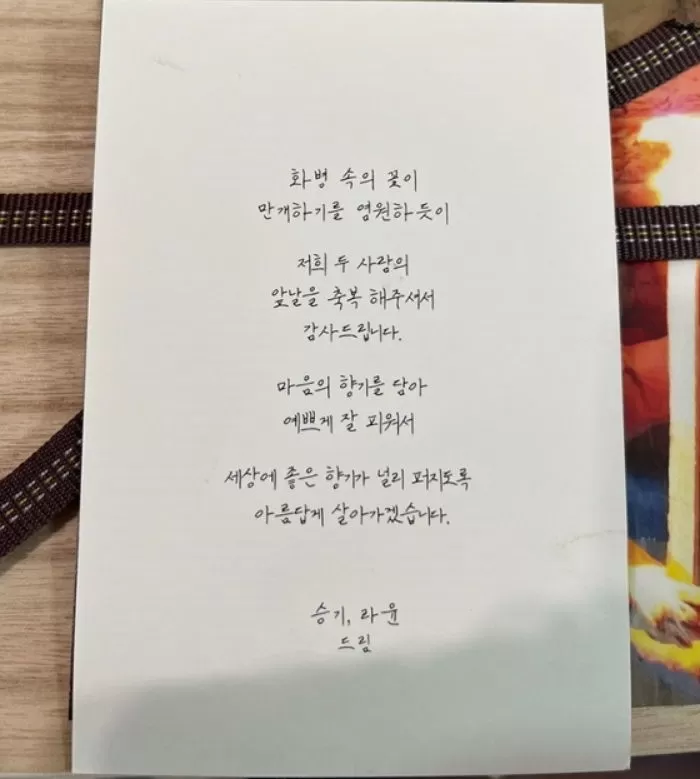 화병 속의 꽃이
만개하기를 염원하듯이
저희 두 사람의
앞날을 축복 해주셔서
감사드립니다.
마음의 향기를 담아
예쁘게 잘 피워서
세상에 좋은 향기가 널리 퍼지도록
아름답게 살아가겠습니다.
승기, 라윤
드림